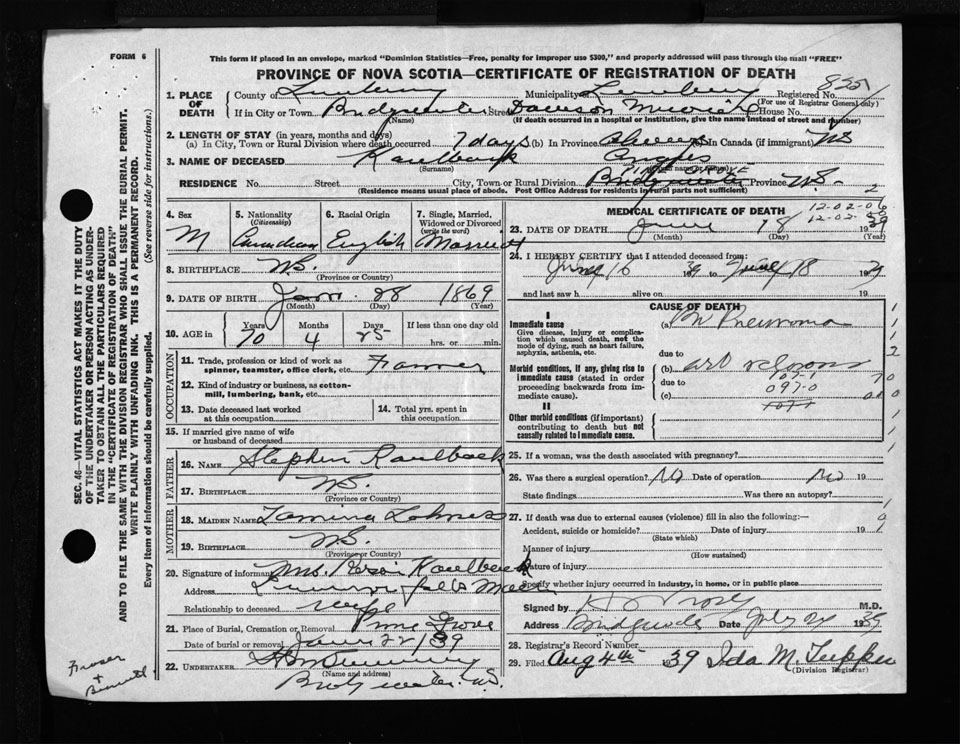 FORM 6
This form if placed in an envelope, marked "Dominion Statistics—Free, penalty for improper use $300," and properly addressed will pass through the mail "FREE"
PROVINCE OF NOVA SCOTIA—CERTIFICATE OF REGISTRATION OF DEATH
1. PLACE OF DEATH
County of Lunenburg Municipality of Lunenburg Registered No. 8251
(For use of Registrar General only)
If in City or Town Bridgewater Street Dawson Memorial House No.
(Name) (If death occurred in a hospital or institution, give the name instead of street and number)
2. LENGTH OF STAY (in years, months and days)
(a) In City, Town or Rural Division where death occurred 7 days (b) In Province always (c) In Canada (if immigrant) NS
3. NAME OF DECEASED Kaulback
(Surname)
RESIDENCE No. Street City, Town or Rural Division Bridgewater Province N.S. 2
(Residence means usual place of abode. Post Office Address for residents in rural parts not sufficient)
4. Sex M
5. Nationality (Citizenship) Canadian
6. Racial Origin English
7. Single, Married, Widowed or Divorced (write the word) Married
8. BIRTHPLACE N.S.
(Province or Country)
9. DATE OF BIRTH Jan. 28 1869
(Month) (Day) (Year)
10. AGE in Years 70 Months 4 Days 25 If less than one day old hrs. or min.
OCCUPATION
11. Trade, profession or kind of work as spinner, teamster, office clerk, etc. Farmer
12. Kind of industry or business, as cotton-mill, lumbering, bank, etc.
13. Date deceased last worked at this occupation
14. Total yrs. spent in this occupation
15. If married give name of wife or husband of deceased
FATHER
16. NAME Stephen Kaulback
17. BIRTHPLACE N.S.
(Province or Country)
MOTHER
18. MAIDEN NAME Lohnes
19. BIRTHPLACE N.S.
(Province or Country)
20. Signature of informant Mrs. Kaulback
Address
Relationship to deceased wife
21. Place of Burial, Cremation or Removal Pine Grove
Date of burial or removal 22 1939
22. UNDERTAKER
(Name and address)
Bridgewater N.S.
MEDICAL CERTIFICATE OF DEATH
12-02-06
12-02-
23. DATE OF DEATH June 18 1939
(Month) (Day) (Year)
24. I HEREBY CERTIFY that I attended deceased from:
June 16 39 to 18 1939
and last saw h alive on 19
CAUSE OF DEATH
I
Immediate cause
Give disease, injury or complication which caused death, not the mode of dying, such as heart failure, asphyxia, asthenia, etc.
(a) Br Pneumonia
due to
Morbid conditions, if any, giving rise to immediate cause (stated in order proceeding backwards from immediate cause).
(b)
due to 107-1
(c) 097-0
II
Other morbid conditions (if important) contributing to death but not causally related to immediate cause.
25. If a woman, was the death associated with pregnancy?
26. Was there a surgical operation? No Date of operation No 19
State findings Was there an autopsy?
27. If death was due to external causes (violence) fill in also the following:—
Accident, suicide or homicide? Date of injury 19
(State which)
Manner of injury
(How sustained)
Nature of injury
Specify whether injury occurred in industry, in home, or in public place
Signed by M.D.
Address Bridgewater Date July 1939
28. Registrar's Record Number
29. Filed Aug 4th 1939 Ida M. Tupper
(Division Registrar)
SEC. 46—VITAL STATISTICS ACT MAKES IT THE DUTY OF THE UNDERTAKER OR PERSON ACTING AS UNDERTAKER TO OBTAIN ALL THE PARTICULARS REQUIRED IN THE "CERTIFICATE OF REGISTRATION OF DEATH" AND TO FILE THE SAME WITH THE DIVISION REGISTRAR WHO SHALL ISSUE THE BURIAL PERMIT. WRITE PLAINLY WITH UNFADING INK. THIS IS A PERMANENT RECORD.
Every item of information should be carefully supplied. (See reverse side for instructions.)
Fraser
+
Bennett